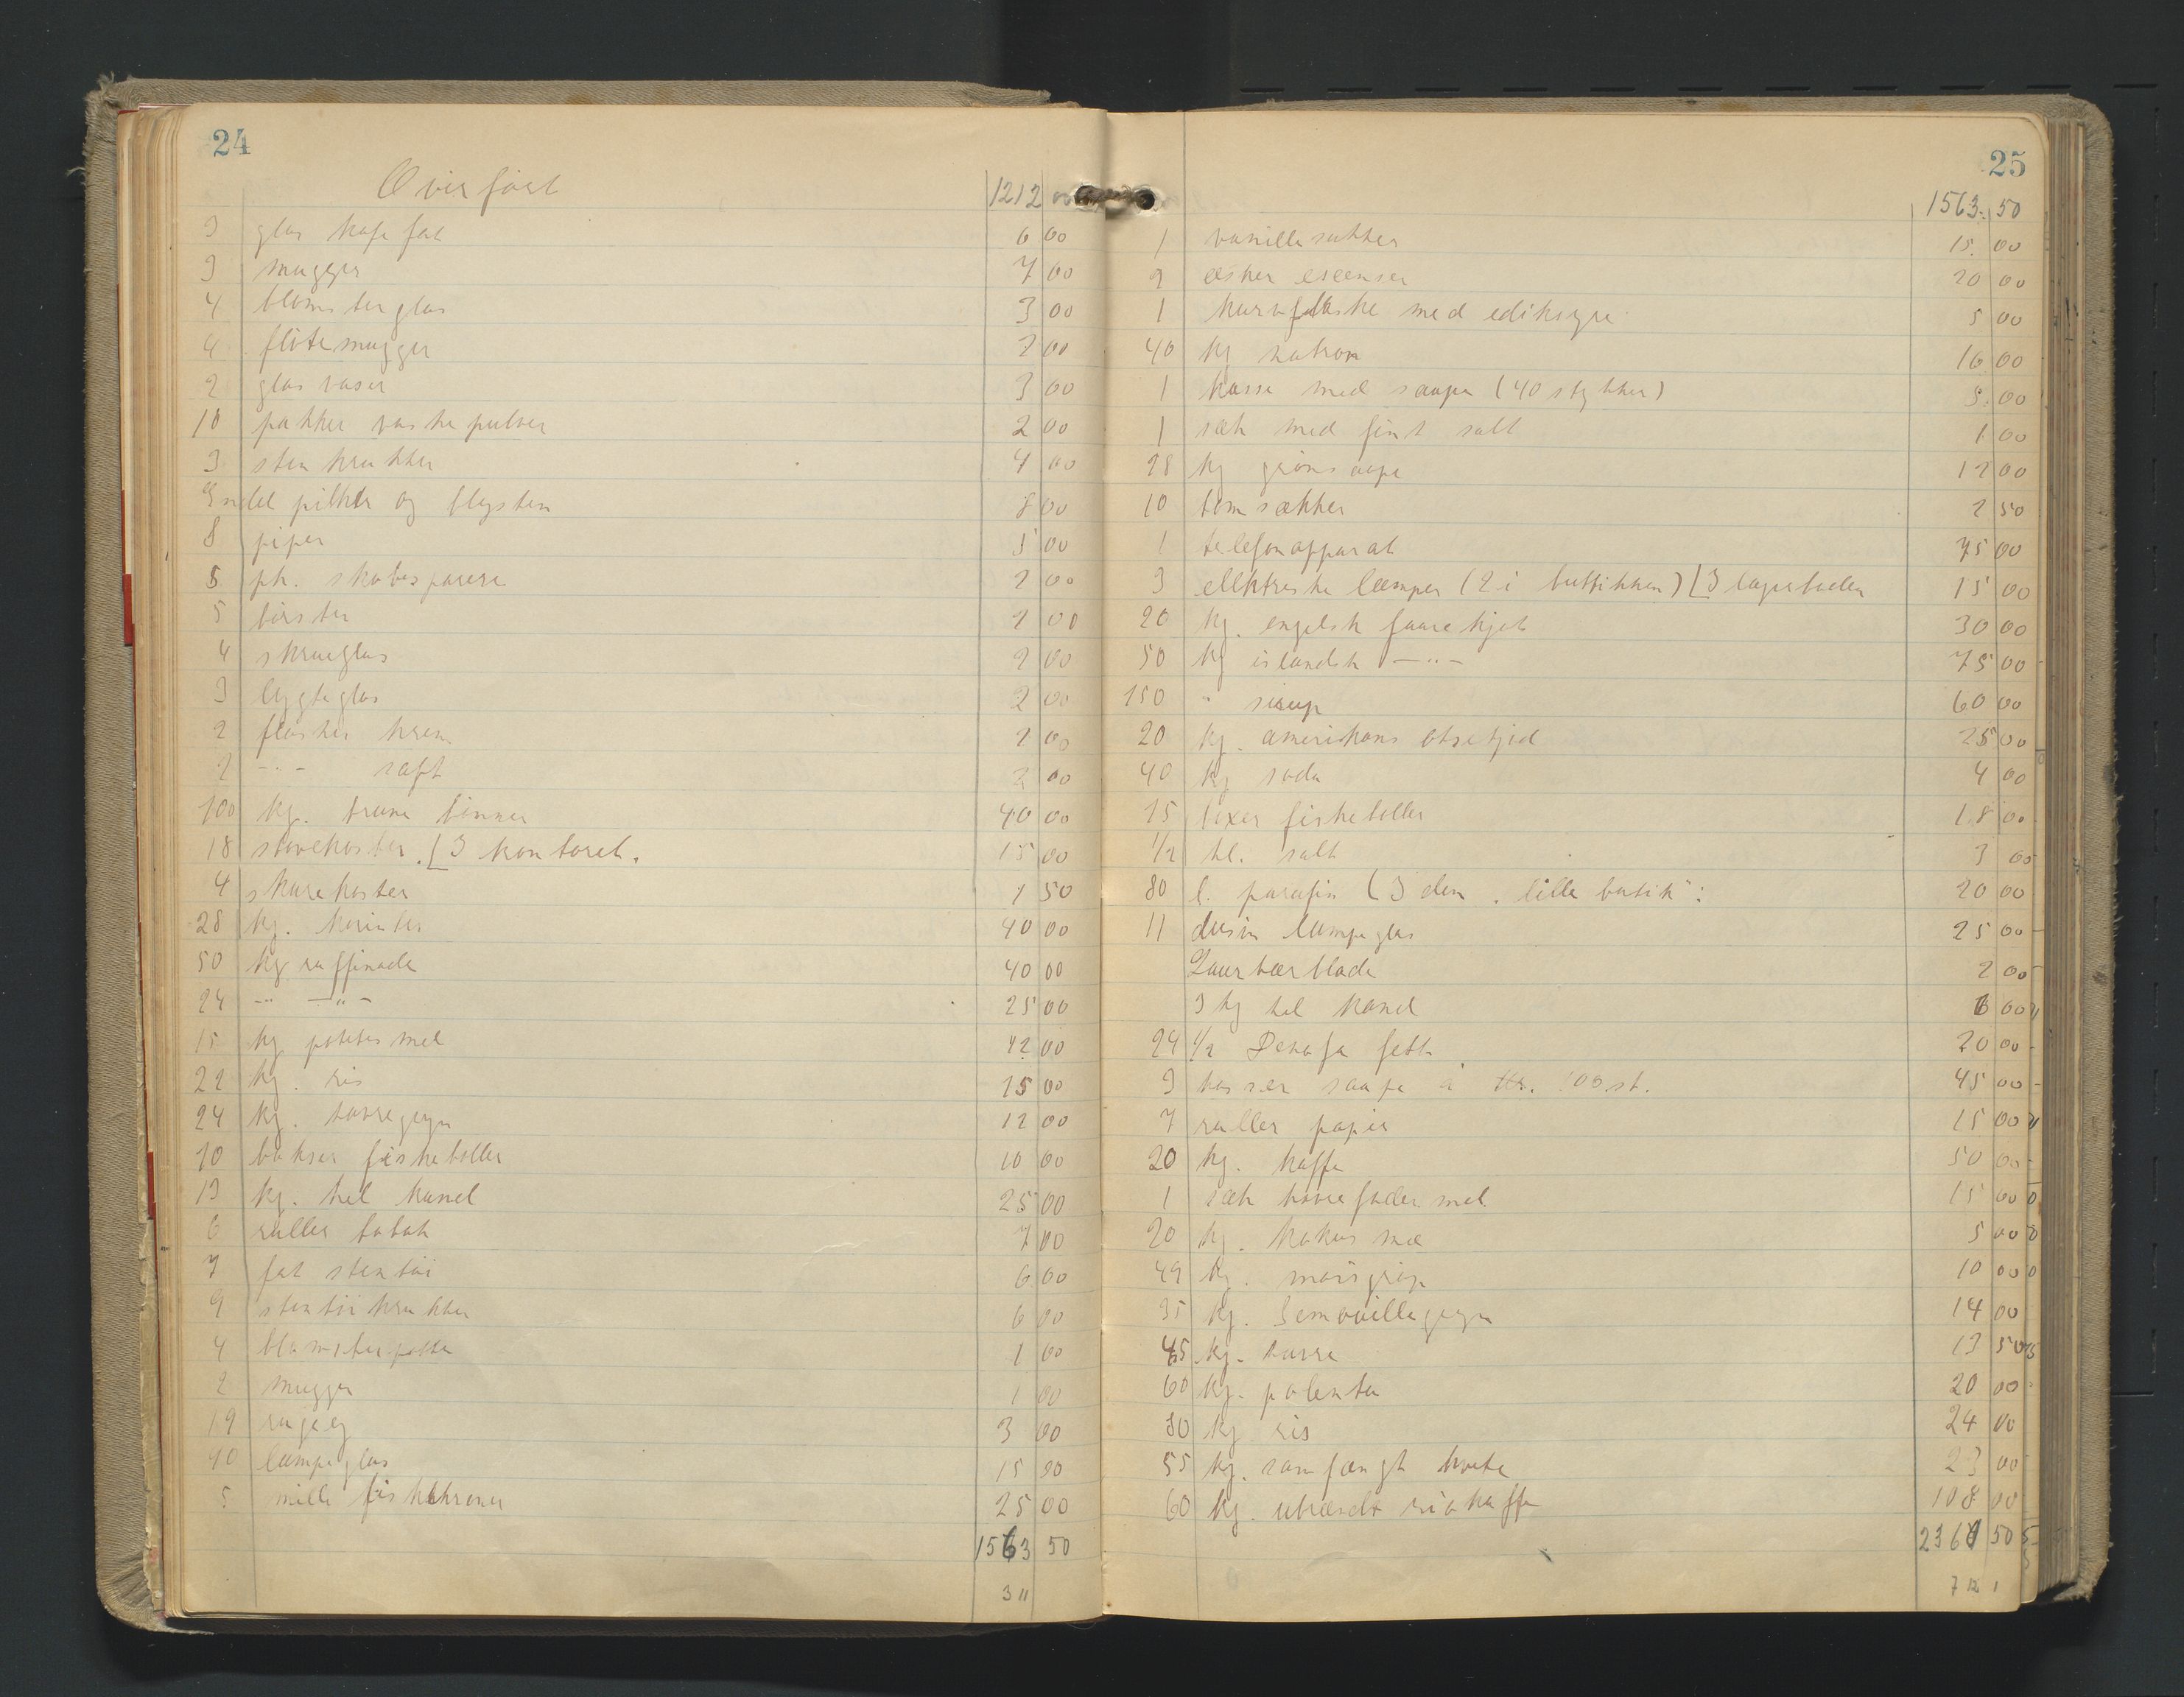 24
Overført 1212 00
3 glas kafe fat 6 00
3 mugger 7 00
4 blomsterglas 3 00
4 fløtemugger 2 00
2 glas vaser 3 00
10 pakker vaskepulver 2 00
3 stenkrukker 4 00
Endel pilker og blysten 8 00
8 piper 5 00
5 pk. skobesparere 2 00
5 børster 2 00
4 skrueglas 2 00
3 lygteglas 2 00
2 flasker krem 2 00
2 -"- saft 2 00
100 kg. tomme tønner 40 00
18 stovekoster. [I kontoret. 15 00
4 skurekoster 1 50
28 kg. korinter 40 00
50 kg raffinade 40 00
24 -"- -"- 25 00
15 kg potetesmel 12 00
22 kg. ris 15 00
24 kg. havregryn 12 00
10 bokser fiskeboller 10 00
13 kg. hel kanel 25 00
6 ruller tobak 7 00
7 fat stentøi 6 00
9 stentøikrukker 6 00
4 blomsterpotter 1 00
2 mugger 1 00
19 3 00
40 lampeglas 15 00
5 mille fiskekroner 25 00
1563 50
311
25
1563. 50
1 vanillesukker 15 00
2 æsker escenser 20 00
1 kurvflaske med ediksyre 5 00
40 kg natron 16 00
1 kasse med saape (40 stykker) 5 00
1 sæk med fint salt 1 00
28 kg grønsaape 12 00
10 tomsækker 2 50
1 telefonapparat 75 00
3 elektriske lamper (2 i buttikken) [I lagerboden 15 00
20 kg. engelsk faarekjøt 30 00
50 kg islandsk -"- 75 00
150 " sirup 60 00
20 kg. amerikans oksekjød 25 00
40 kg soda 4 00
15 boxer fiskeboller 18 00
1/2 hl. salt 3 00
80 l. parafin (I den "lille butik": 20 00
11 dusin lampeglas 25 00
Laurbærblade 2 00
3 kg hel kanel 6 00
24 1/2 Denofa fett 20 00
9 kasser saape á 45 00
7 ruller papir 15 00
20 kg. kaffe 50 00
1 sæk havrefodermel 15 00
20 kg. kokus mel 5 00
49 kg. maisgrøp 10 00
35 kg. Semouillegryn 14 00
45 kg. havre 13 50
60 kg. polenta 20 00
80 kg ris 24 00
55 kg. samfængt hvete 23 00
60 kg. ubrændt riokaffe 108 00
2361 50